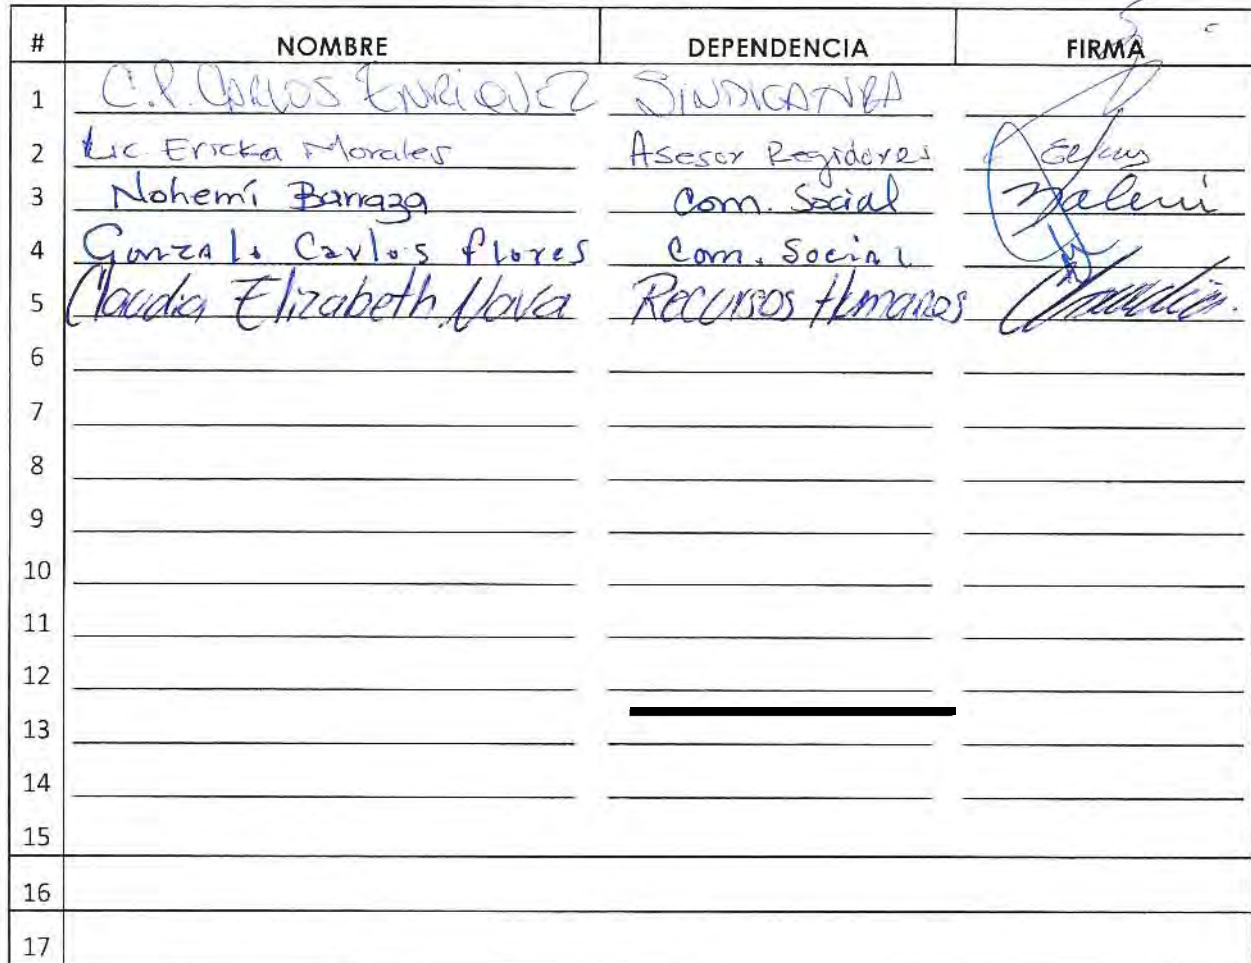 # NOMBRE DEPENDENCIA FIRMA
1 C.P. CARLOS ENRIQUEZ SINDICATURA
2 Lic. Ericka Morales Asesor Regidores
3 Nohemí Barraza Com. Social Nohemí
4 Gonzalo Carlos flores Com. Social
5 Claudia Elizabeth Nava Recursos Humanos
6
7
8
9
10
11
12
13
14
15
16
17